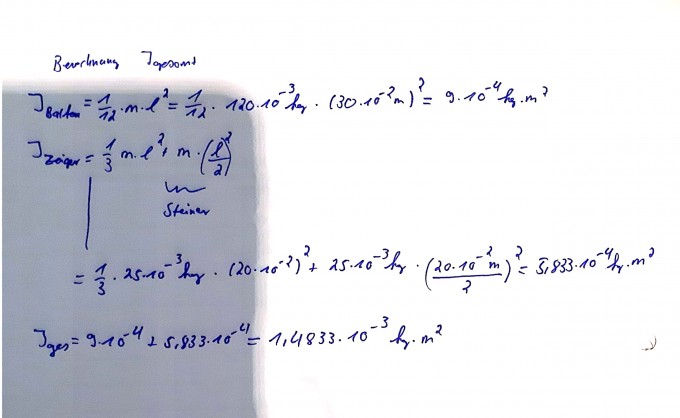 Berechnung Jgesamt
J_Balken = 1/12 · m · l² = 1/12 · 120·10⁻³ kg · (30·10⁻² m)² = 9·10⁻⁴ kg·m²
J_Zeiger = 1/3 m·l² + m·(l/2)²
Steiner
= 1/3 · 25·10⁻³ kg · (20·10⁻²)² + 25·10⁻³ kg · (20·10⁻² m / 2)² = 5,833·10⁻⁴ kg·m²
J_ges = 9·10⁻⁴ + 5,833·10⁻⁴ = 1,4833·10⁻³ kg·m²